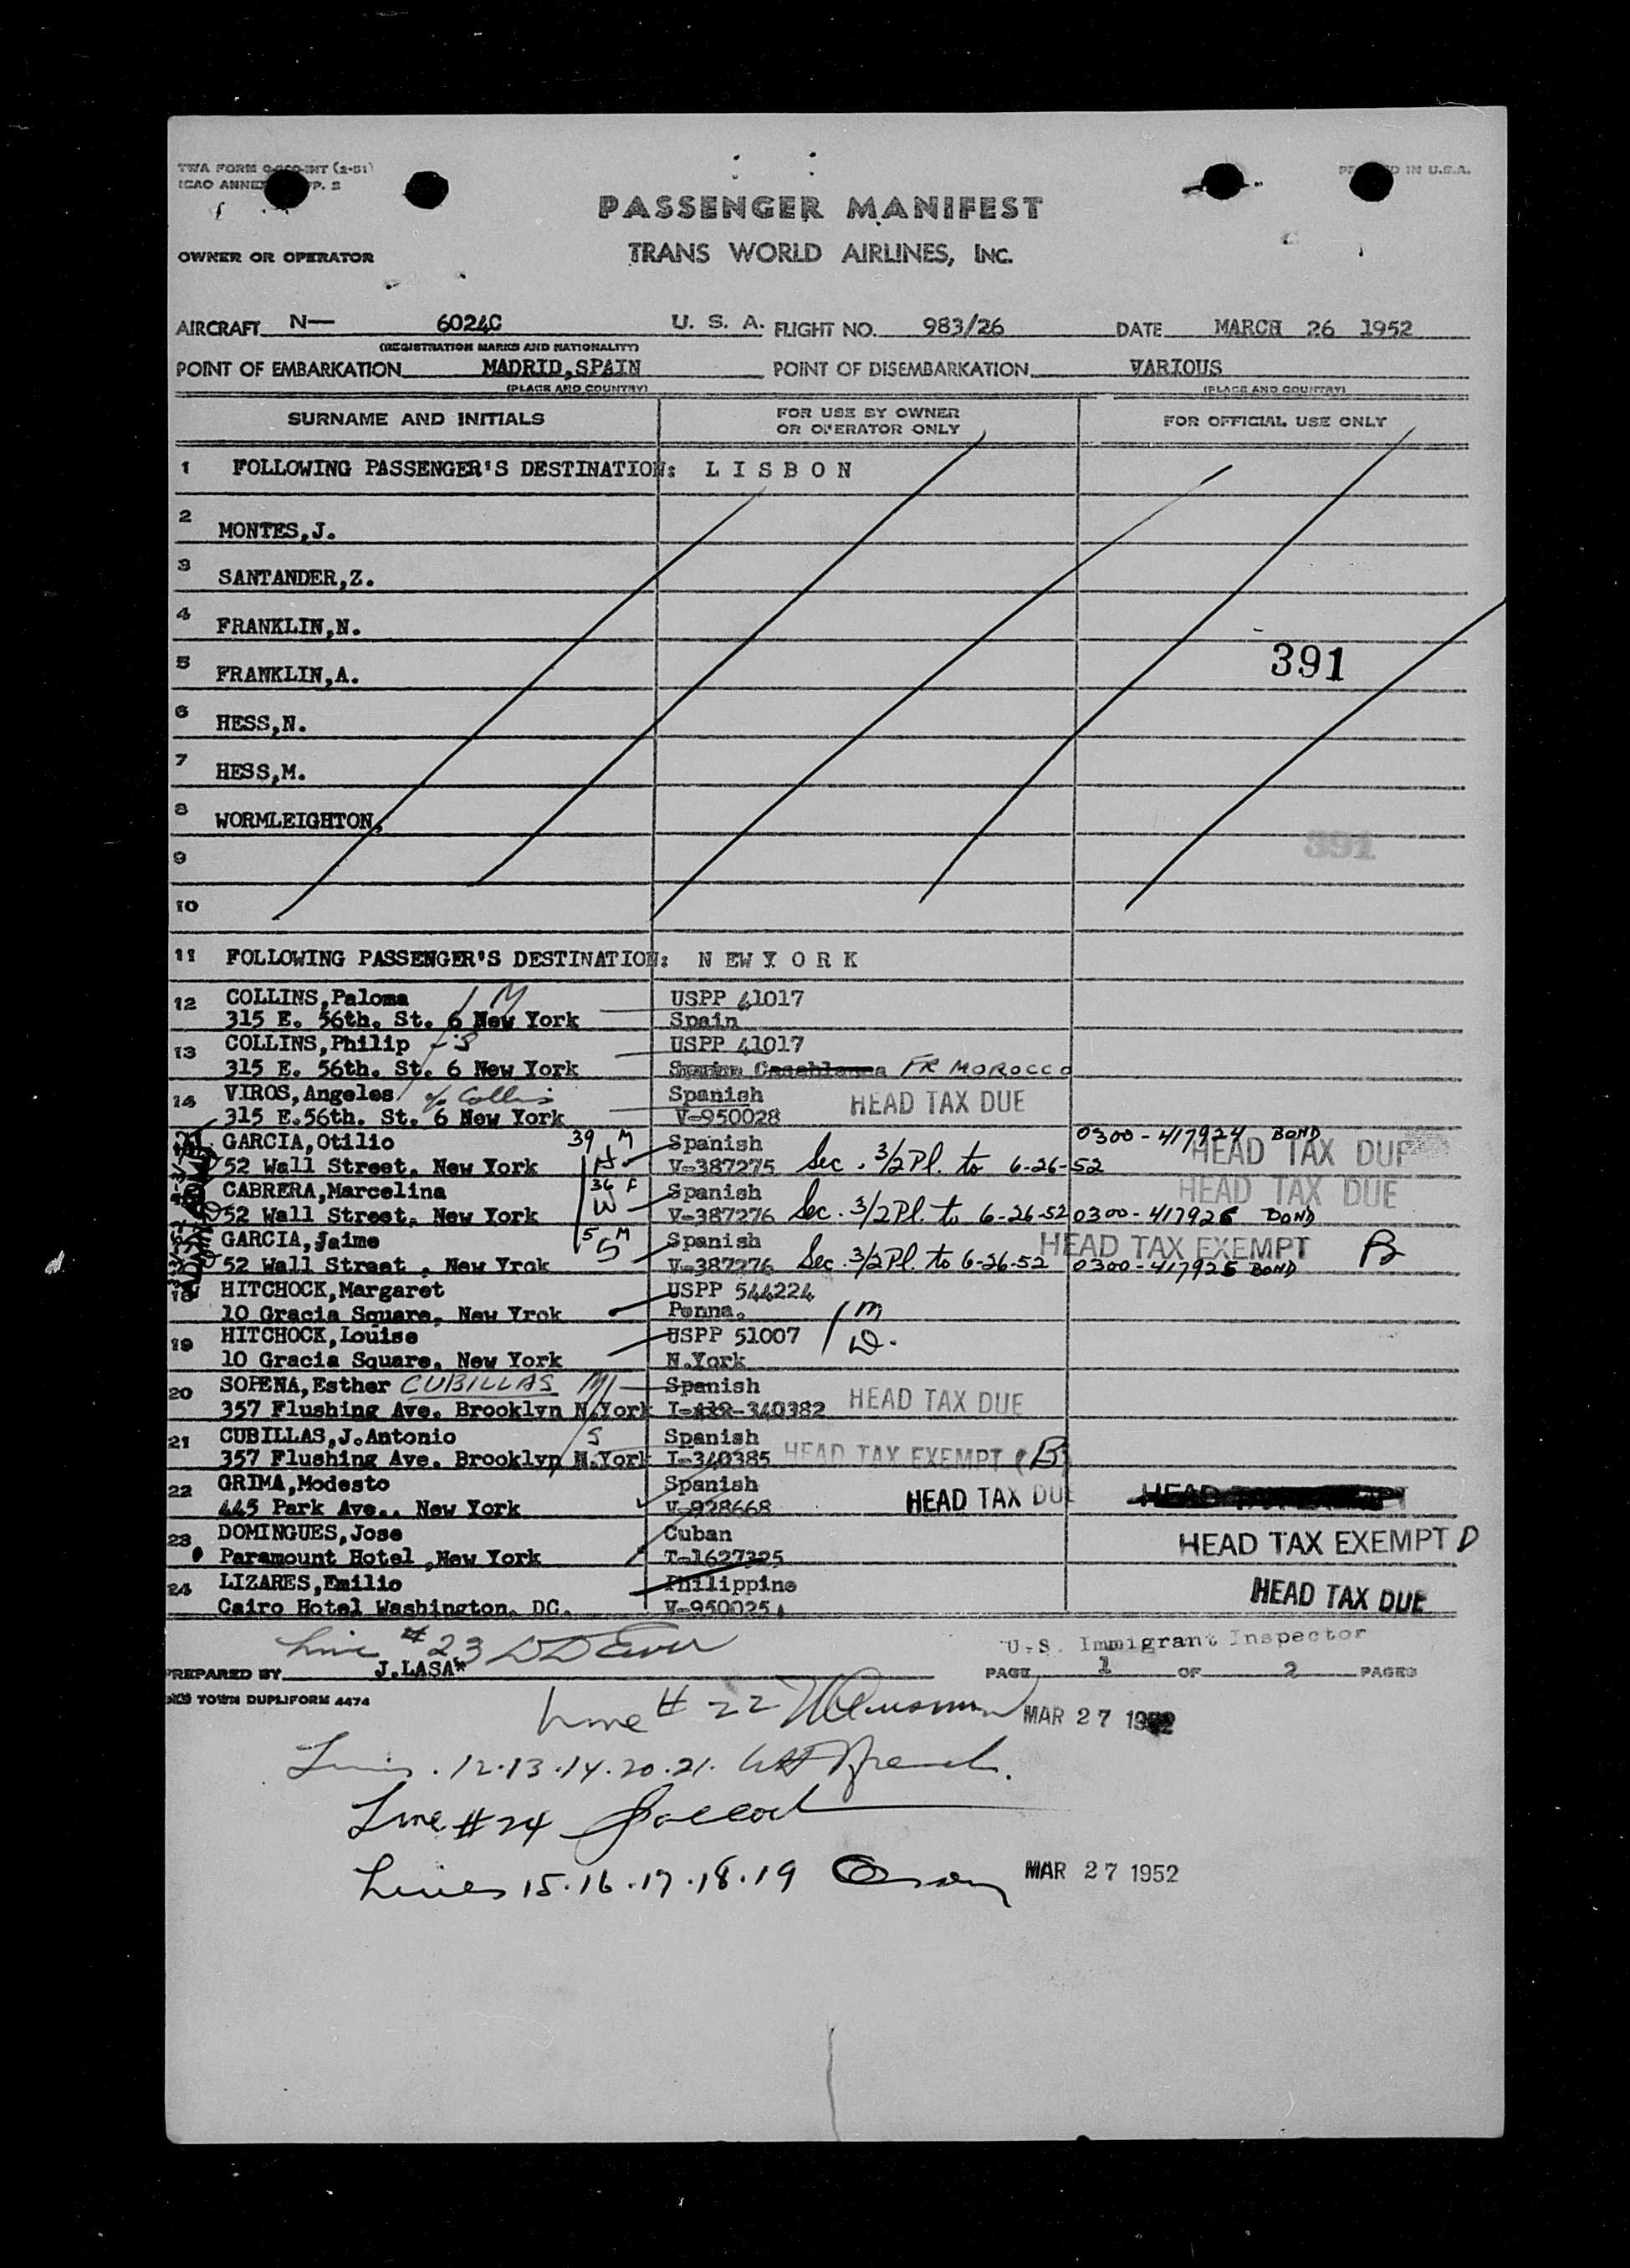 TWA FORM (2-51)
ICAO ANNEX APP. 2
D IN U.S.A.
PASSENGER MANIFEST
OWNER OR OPERATOR TRANS WORLD AIRLINES, INC.
AIRCRAFT N— 6024C U. S. A. FLIGHT NO. 983/26 DATE MARCH 26 1952
(REGISTRATION MARKS AND NATIONALITY)
POINT OF EMBARKATION MADRID,SPAIN POINT OF DISEMBARKATION VARIOUS
(PLACE AND COUNTRY) (PLACE AND COUNTRY)
SURNAME AND INITIALS FOR USE BY OWNER OR OPERATOR ONLY FOR OFFICIAL USE ONLY
1 FOLLOWING PASSENGER'S DESTINATION: L I S B O N
2 MONTES,J.
3 SANTANDER,Z.
4 FRANKLIN,N.
5 FRANKLIN,A. 391
6 HESS,N.
7 HESS,M.
8 WORMLEIGHTON,
391
9
10
11 FOLLOWING PASSENGER'S DESTINATION: N EW Y O R K
12 COLLINS,Paloma M USPP 41017
315 E. 56th. St. 6 New York Spain
13 COLLINS,Philip S USPP 41017
315 E. 56th. St. 6 New York Casablanca FR MOROCCO
14 VIROS,Angeles c/o Collins Spanish HEAD TAX DUE
315 E.56th. St. 6 New York V-950028
GARCIA,Otilio 39 M Spanish 0300-417924 BOND HEAD TAX DUE
52 Wall Street, New York H. V-387275 Sec. 3/2 Pl. to 6-26-52
CABRERA,Marcelina 36 F Spanish HEAD TAX DUE
52 Wall Street, New York W V-387276 Sec. 3/2 Pl. to 6-26-52 0300-417926 BOND
GARCIA,Jaime 5 M Spanish HEAD TAX EXEMPT B
52 Wall Street , New Yrok S V-387276 Sec. 3/2 Pl. to 6-26-52 0300-417925 BOND
18 HITCHOCK,Margaret USPP 544224
10 Gracia Square, New Yrok Penna. M
19 HITCHOCK,Louise USPP 51007 D.
10 Gracia Square, New York N.York
20 SOPENA,Esther CUBILLAS M Spanish HEAD TAX DUE
357 Flushing Ave. Brooklyn N.York I-340382
21 CUBILLAS,J.Antonio S Spanish
357 Flushing Ave. Brooklyn N.York I-340385 HEAD TAX EXEMPT (B)
22 GRIMA,Modesto Spanish
445 Park Ave., New York V-928668 HEAD TAX DUE
23 DOMINGUES,Jose Cuban HEAD TAX EXEMPT D
Paramount Hotel ,New York T-1627325
24 LIZARES,Emilio Philippine HEAD TAX DUE
Cairo Hotel Washington. DC. V-950025
Line #23
U.S. Immigrant Inspector
PREPARED BY J.LASA PAGE 1 OF 2 PAGES
TOWN DUPLIFORM 4474
Line # 22 MAR 27 1952
Lines. 12.13.14.20.21.
Line #24
Lines 15.16.17.18.19 MAR 27 1952